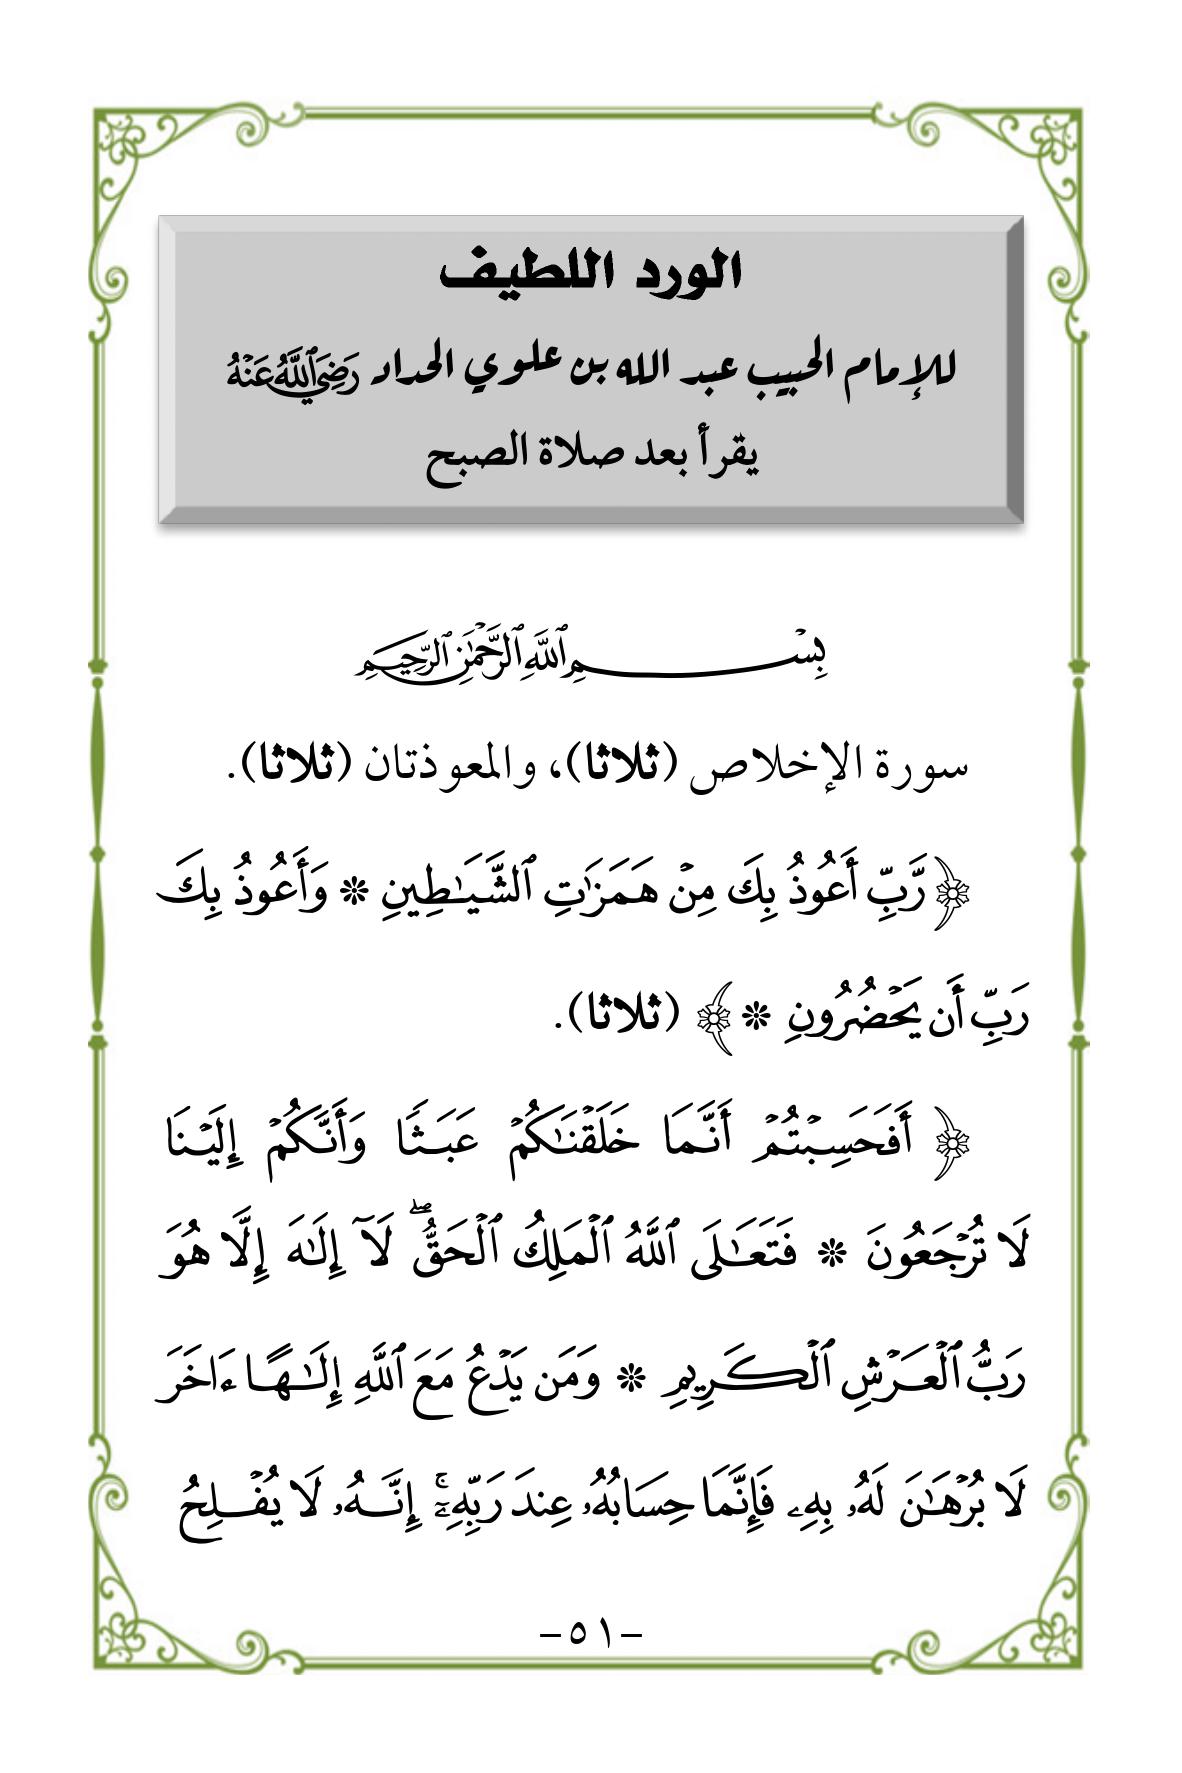 الورد اللطيف
للإمام الحبيب عبد الله بن علوي الحداد رَضِيَ ٱللَّهُ عَنْهُ
يقرأ بعد صلاة الصبح
بِسْمِ ٱللَّهِ ٱلرَّحْمَٰنِ ٱلرَّحِيمِ
سورة الإخلاص (ثلاثا)، والمعوذتان (ثلاثا).
﴿رَّبِّ أَعُوذُ بِكَ مِنْ هَمَزَٰتِ ٱلشَّيَٰطِينِ * وَأَعُوذُ بِكَ
رَبِّ أَن يَحْضُرُونِ *﴾ (ثلاثا).
﴿ أَفَحَسِبْتُمْ أَنَّمَا خَلَقْنَٰكُمْ عَبَثًا وَأَنَّكُمْ إِلَيْنَا
لَا تُرْجَعُونَ * فَتَعَٰلَى ٱللَّهُ ٱلْمَلِكُ ٱلْحَقُّۖ لَآ إِلَٰهَ إِلَّا هُوَ
رَبُّ ٱلْعَرْشِ ٱلْكَرِيمِ * وَمَن يَدْعُ مَعَ ٱللَّهِ إِلَٰهًا ءَاخَرَ
لَا بُرْهَٰنَ لَهُۥ بِهِۦ فَإِنَّمَا حِسَابُهُۥ عِندَ رَبِّهِۦٓۚ إِنَّهُۥ لَا يُفْلِحُ
–٥١–